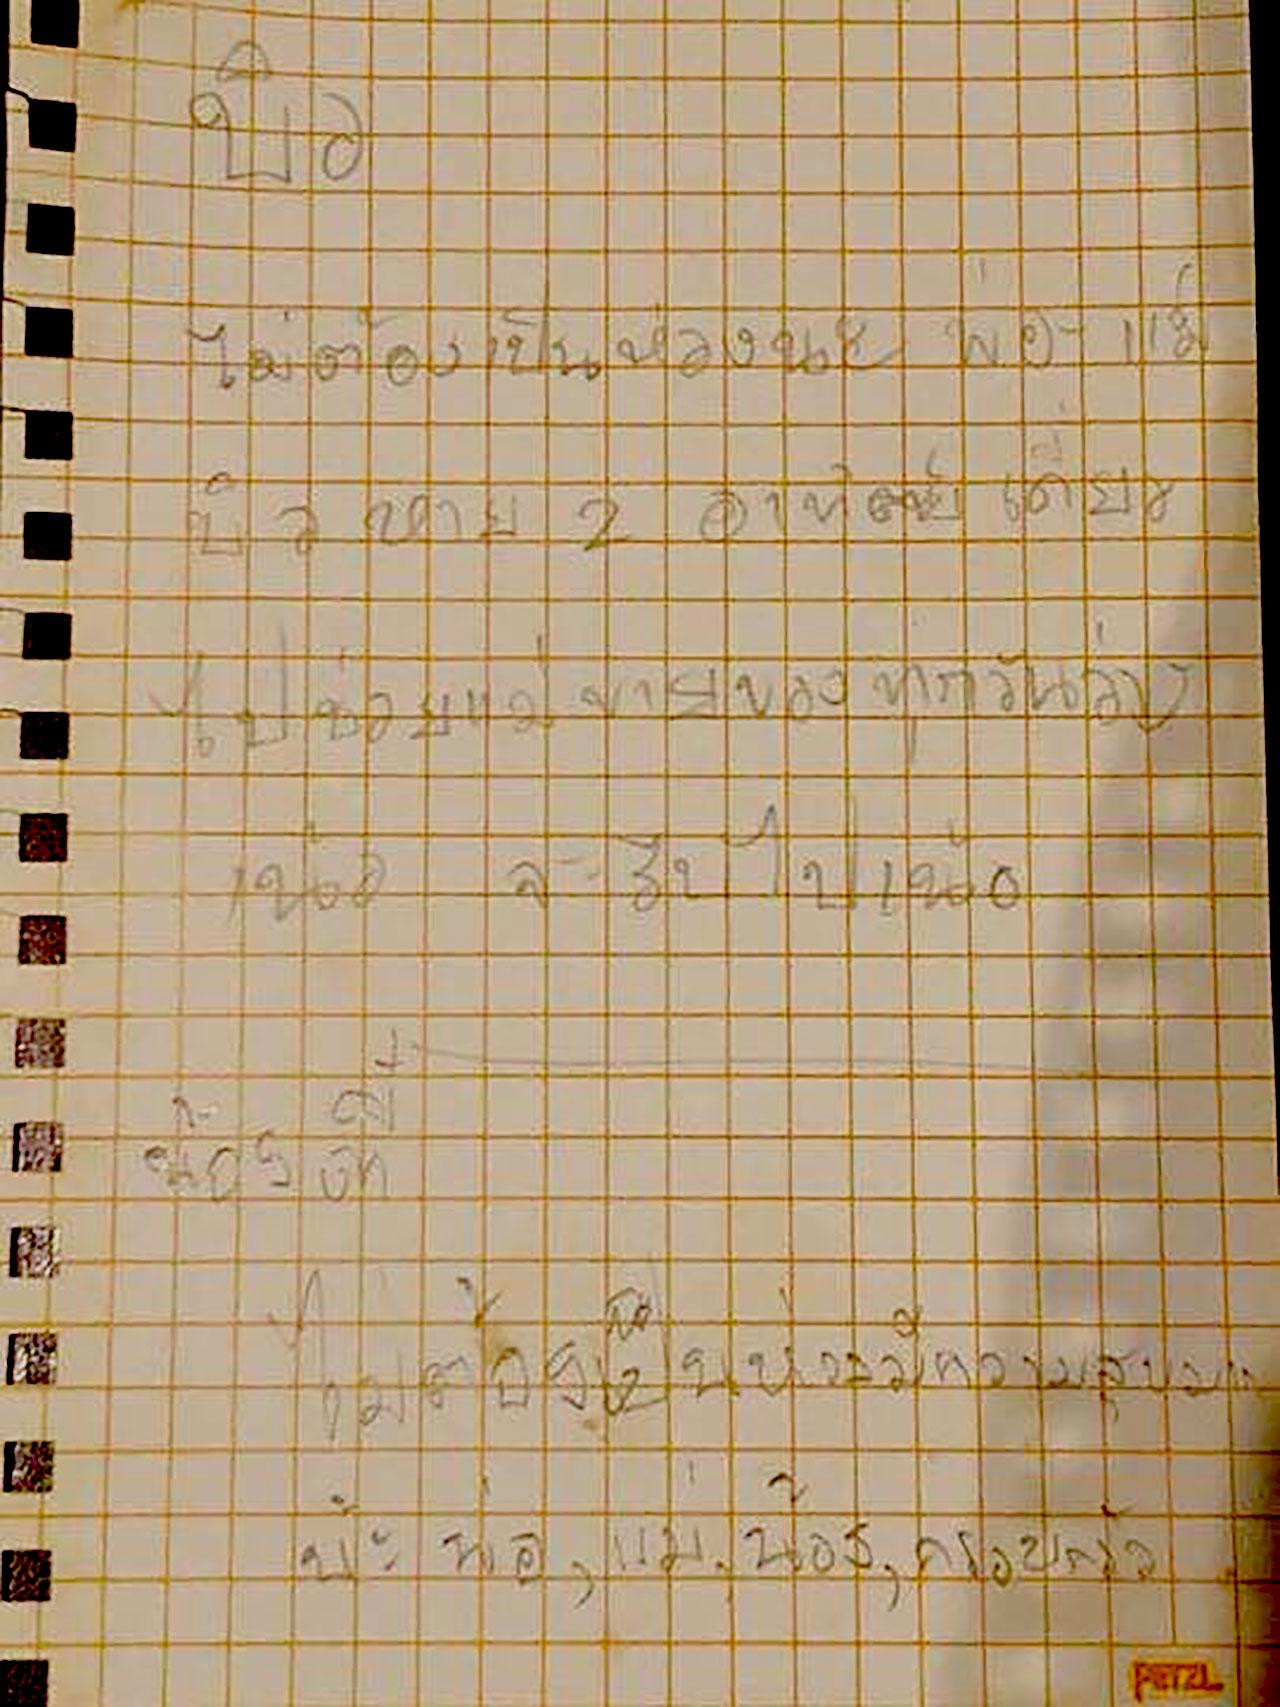 บิว
ไม่ต้องเป็นห่วงนะ พ่อ แม่
บิว หาย 2 อาทิตย์ เดี๋ยว
ไปช่วยแม่ ขายของ ทุกวัน
เน้อ จะรีบไปเน้อ
น้อง
ไม่ต้อง ห่วง มีความสุขมาก
น้ะ พ่อ, แม่, น้อง, ครอบครัว
PETZL